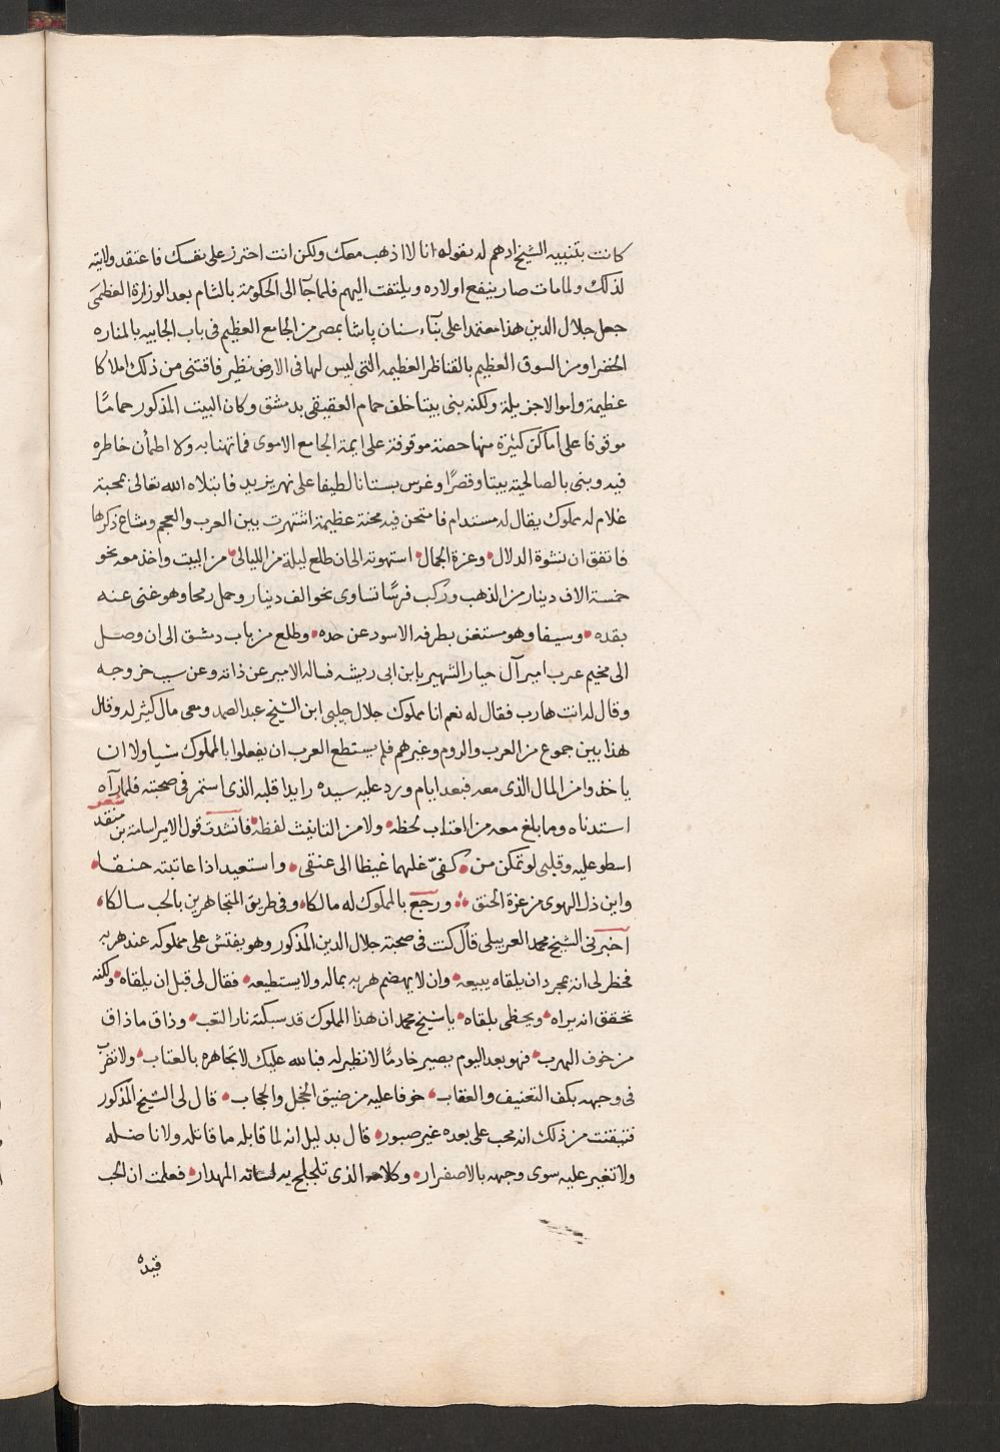 كانت بتنبيه الشيخ ادهم له بقوله انا لا اذهب معك ولكن انت احترز على نفسك فاعتقد ولايته
لذلك ولما مات صار ينفع اولاده ويلتفت اليهم فلما جآ الى الحكومة بالشام بعد الوزارة العظمى
جعل جلال الدين هذا معتمدا على بنآء سنان پاشا بمصر من الجامع العظيم فى باب الجابيه بالمناره
الخضرا ومن السوق العظيم بالقناطر العظيمه التى ليس لها فى الارض نظير فاقتنى من ذلك املاكا
عظيمة واموالا جزيلة ولكنه بنى بيتا خلف حمام العقيقى بدمشق وكان البيت المذكور حمامًا
موقوفا على اماكن كثيرة منها حصة موقوفة على ايمة الجامع الاموى فما تهنا به ولا اطمأن خاطره
فيه وبنى بالصالحية بيتا وقصرًا وغرس بستانا لطيفا على نهر يزيد فابتلاه الله تعالى بمحبة
غلام له مملوك يقال له مستدام فامتحن فيه محنة عظيمة اشتهرت بين العرب والعجم وشاع ذكرها
فاتفق ان نشوة الدلال وعزة الجمال استهوته الى ان طلع ليلة من الليالى من البيت واخذ معه نحو
خمسة الاف دينار من الذهب وركب فرسًا تساوى نحو الف دينار وحمل رمحا وهو غنى عنه
بقده وسيفا وهو مستغن بطرفه الاسود عن حده وطلع من باب دمشق الى ان وصل
الى مخيم عرب امير آل حيار الشهير بابن ابى ريشه فساله الامير عن ذاته وعن سبب خروجه
وقال له انت هارب فقال له نعم انا مملوك جلال جلبى ابن الشيخ عبد الصمد ومعى مال كثير له وقال
هذا بين جموع من العرب والروم وغيرهم فلم يستطع العرب ان يفعلوا بالمملوك شيا ولا ان
ياخذوا من المال الذى معه فبعد ايام ورد عليه سيده رايدا قلبه الذى استمر فى صحبته فلما رآه
استدناه وما بلغ معه من العتاب لحظه ولا من التانيث لفظه فانشدت قول الامير اسامة بن منقذ شعر
اسطو عليه وقلبى لو تمكن من كفىّ غلهما غيظا الى عنقى واستعيد اذا عاتبته حنقا
واين ذل الهوى من عزة الحنق ورجع بالمملوك له مالكا وفى طريق المتجاهرين بالحب سالكا
اخبرنى الشيخ محمد العربيلى قال كنت فى صحبة جلال الدين المذكور وهو يفتش على مملوكه عند هربه
فخطر لى انه بمجرد ان يلقاه يبيعه وان لا يهضم هربه بماله ولا يستطيعه فقال لى قبل ان يلقاه ولكنه
تحقق انه يراه ويحظى بلقاه يا شيخ محمد ان هذا المملوك قد سبكته نار التعب وذاق ما ذاق
من خوف المهرب فهو بعد اليوم يصير خادمًا لا نظير له فبالله عليك لا تجاهره بالعتاب ولا تضرب
فى وجهه بكف التعنيف والعقاب خوفا عليه من ضيق الخجل والحجاب قال لى الشيخ المذكور
فتيقنت من ذلك انه محب على بعده غير صبور قال بدليل انه لما قابله ما قاتله ولا ناضله
ولا تغير عليه سوى وجهه بالاصفرار وكلامه الذى تلجلج به لسانه المهدار فعلمت ان الحب
قيده